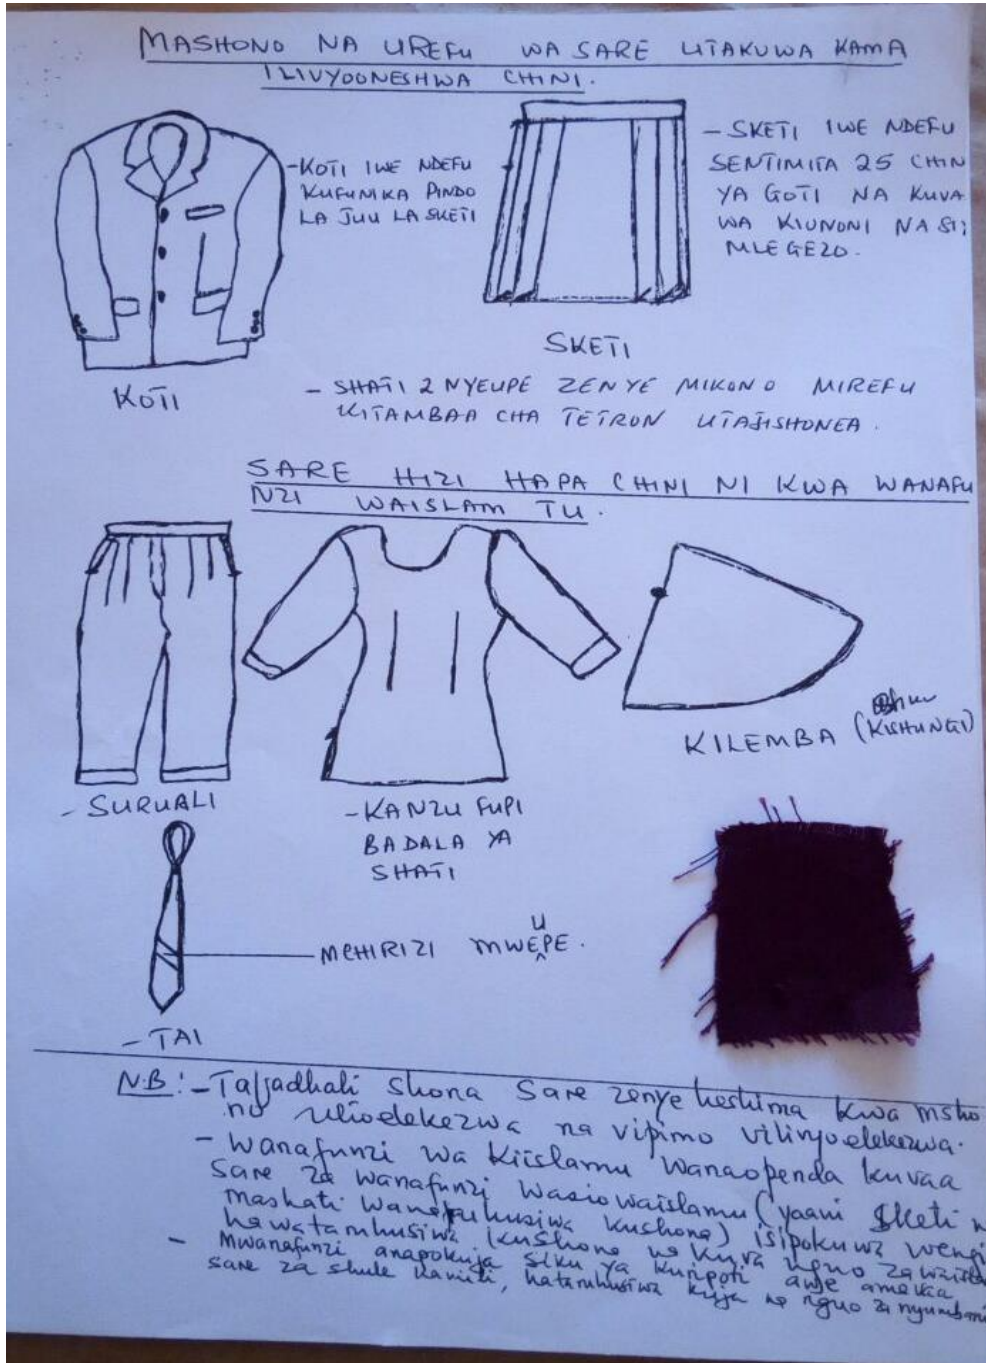 MASHONO NA UREFU WA SARE UTAKUWA KAMA
ILIVYOONESHWA CHINI.
-KOTI IWE NDEFU
KUFUNIKA PINDO
LA JUU LA SKETI
- SKETI IWE NDEFU
SENTIMITA 25 CHIN
YA GOTI NA KUVA
WA KIUNONI NA SII
MLEGEZO.
KOTI
SKETI
- SHATI 2 NYEUPE ZENYE MIKONO MIREFU
KITAMBAA CHA TETRON UTAJISHONEA.
SARE HIZI HAPA CHINI NI KWA WANAFU
NZI WAISLAM TU.
- SURUALI
-KANZU FUPI
BADALA YA
SHATI
KILEMBA (KISHUNGI)
MCHIRIZI MWEUPE.
- TAI
N.B:- Tafadhali shona sare zenye heshima kwa msho
no ulioelekezwa na vipimo vilivyoelekezwa.
- Wanafunzi wa Kiislamu wanaopenda kuvaa
sare za wanafunzi wasiowaislamu (yaani sketi n
mashati wanaruhusiwa kushona) isipokuwa wengi
hawataruhusiwa kushona na kuva nguo za waisla
- Mwanafunzi anapokuja siku ya kuripoti awe amevaa
sare za shule kamili, hataruhusiwa kuja na nguo za nyumbani